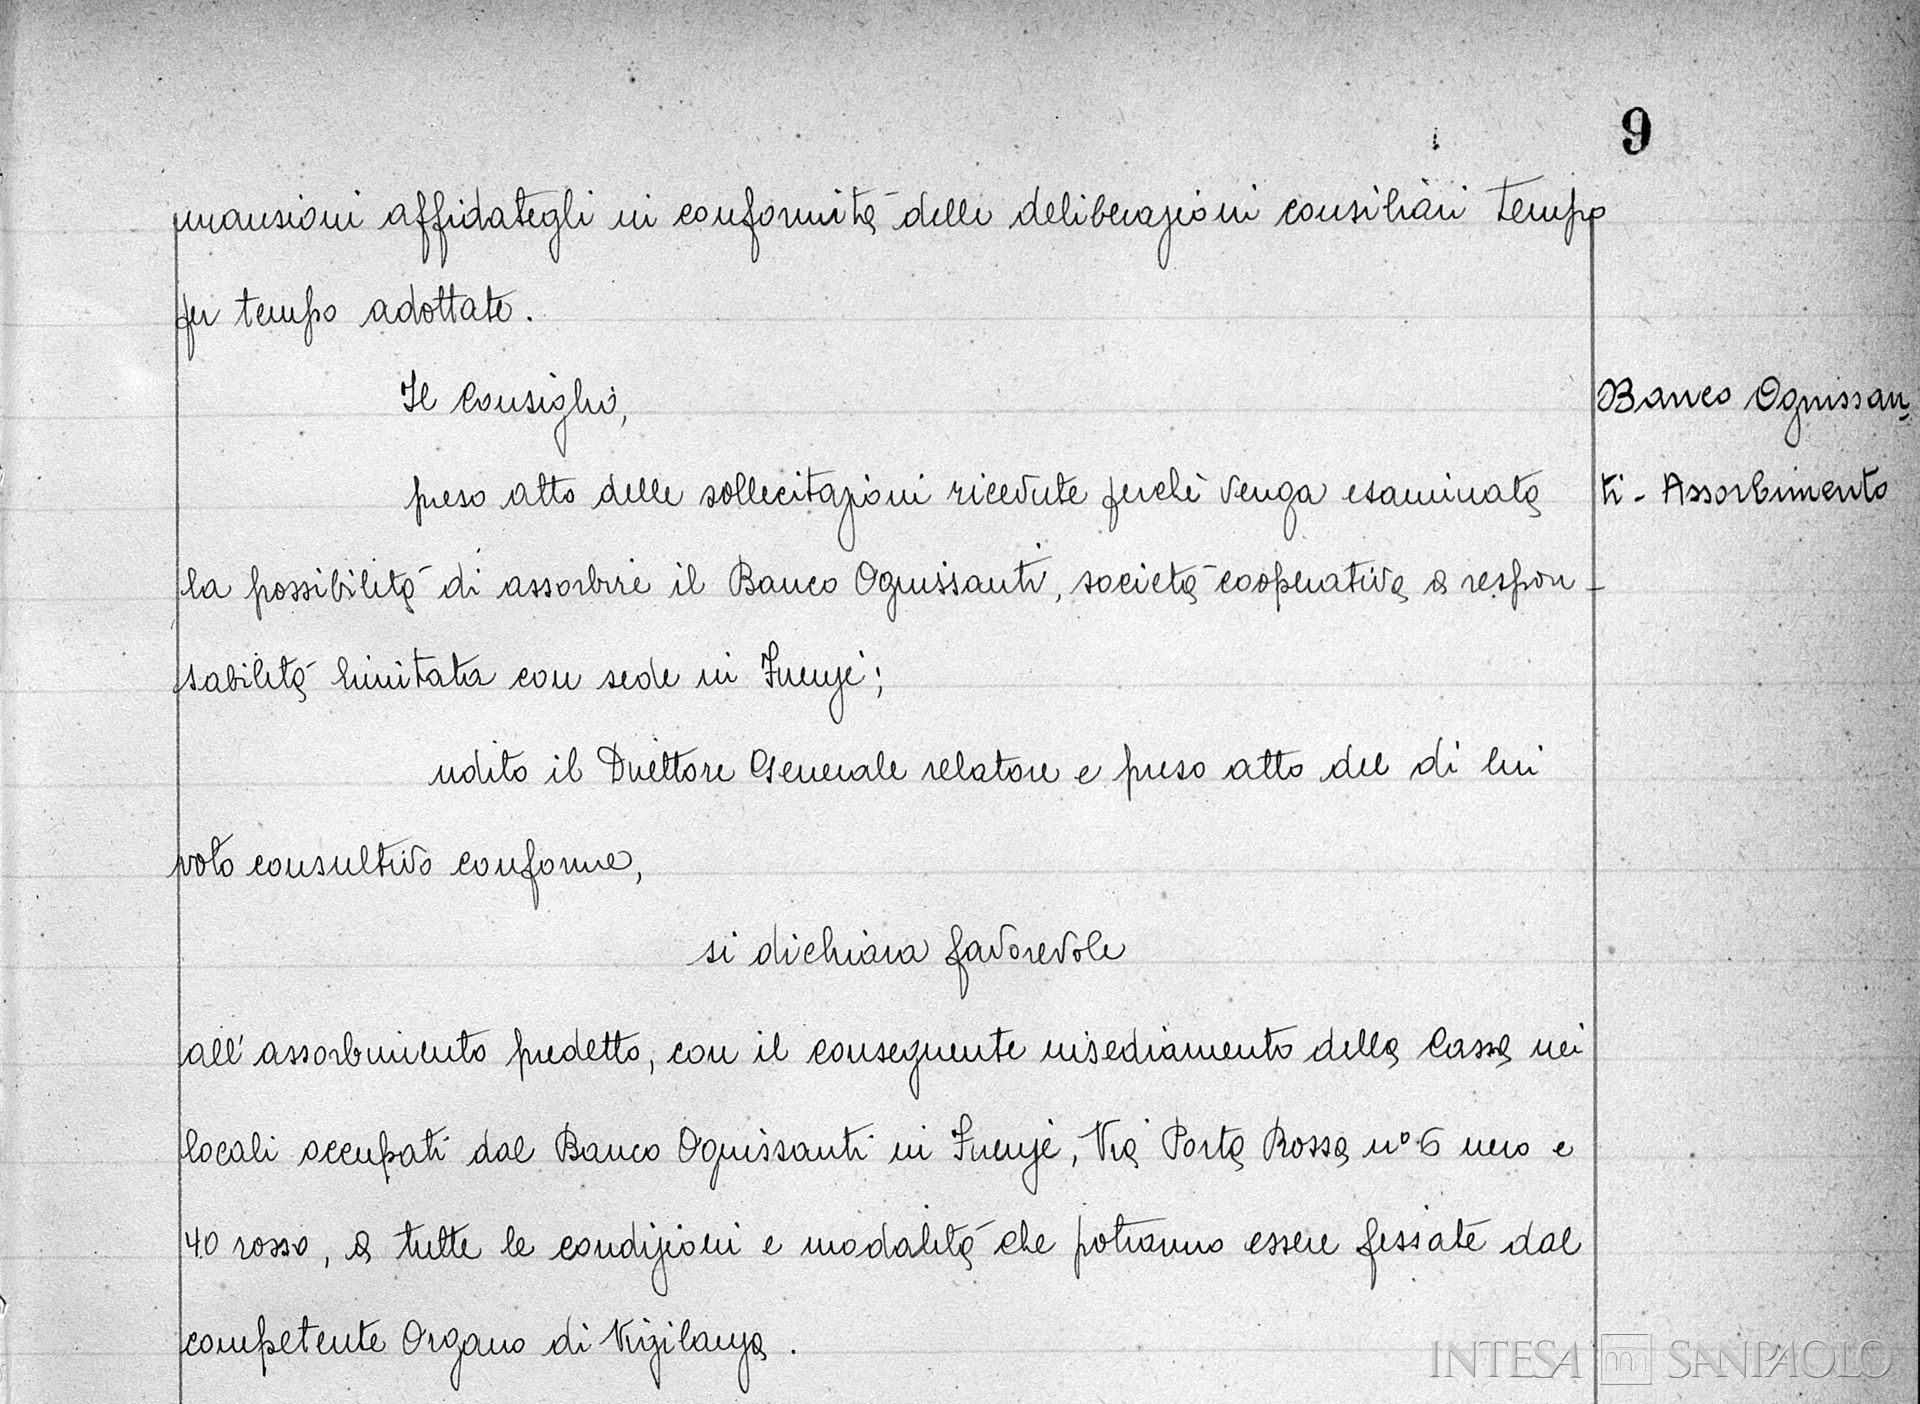 9
mansioni affidategli in conformità delle deliberazioni consiliari tempo
per tempo adottate.
Il Consiglio,
Banco Ognissan-
preso atto delle sollecitazioni ricevute perchè venga esaminata
ti - Assorbimento
la possibilità di assorbire il Banco Ognissanti, società cooperativa a respon-
sabilità limitata con sede in Firenze;
udito il Direttore Generale relatore e preso atto del di lui
voto consultivo conforme,
si dichiara favorevole
all'assorbimento predetto, con il conseguente insediamento della Cassa nei
locali occupati dal Banco Ognissanti in Firenze, Via Porta Rossa n° 6 nero e
40 rosso, a tutte le condizioni e modalità che potranno essere fissate dal
competente Organo di Vigilanza.
INTESA SANPAOLO